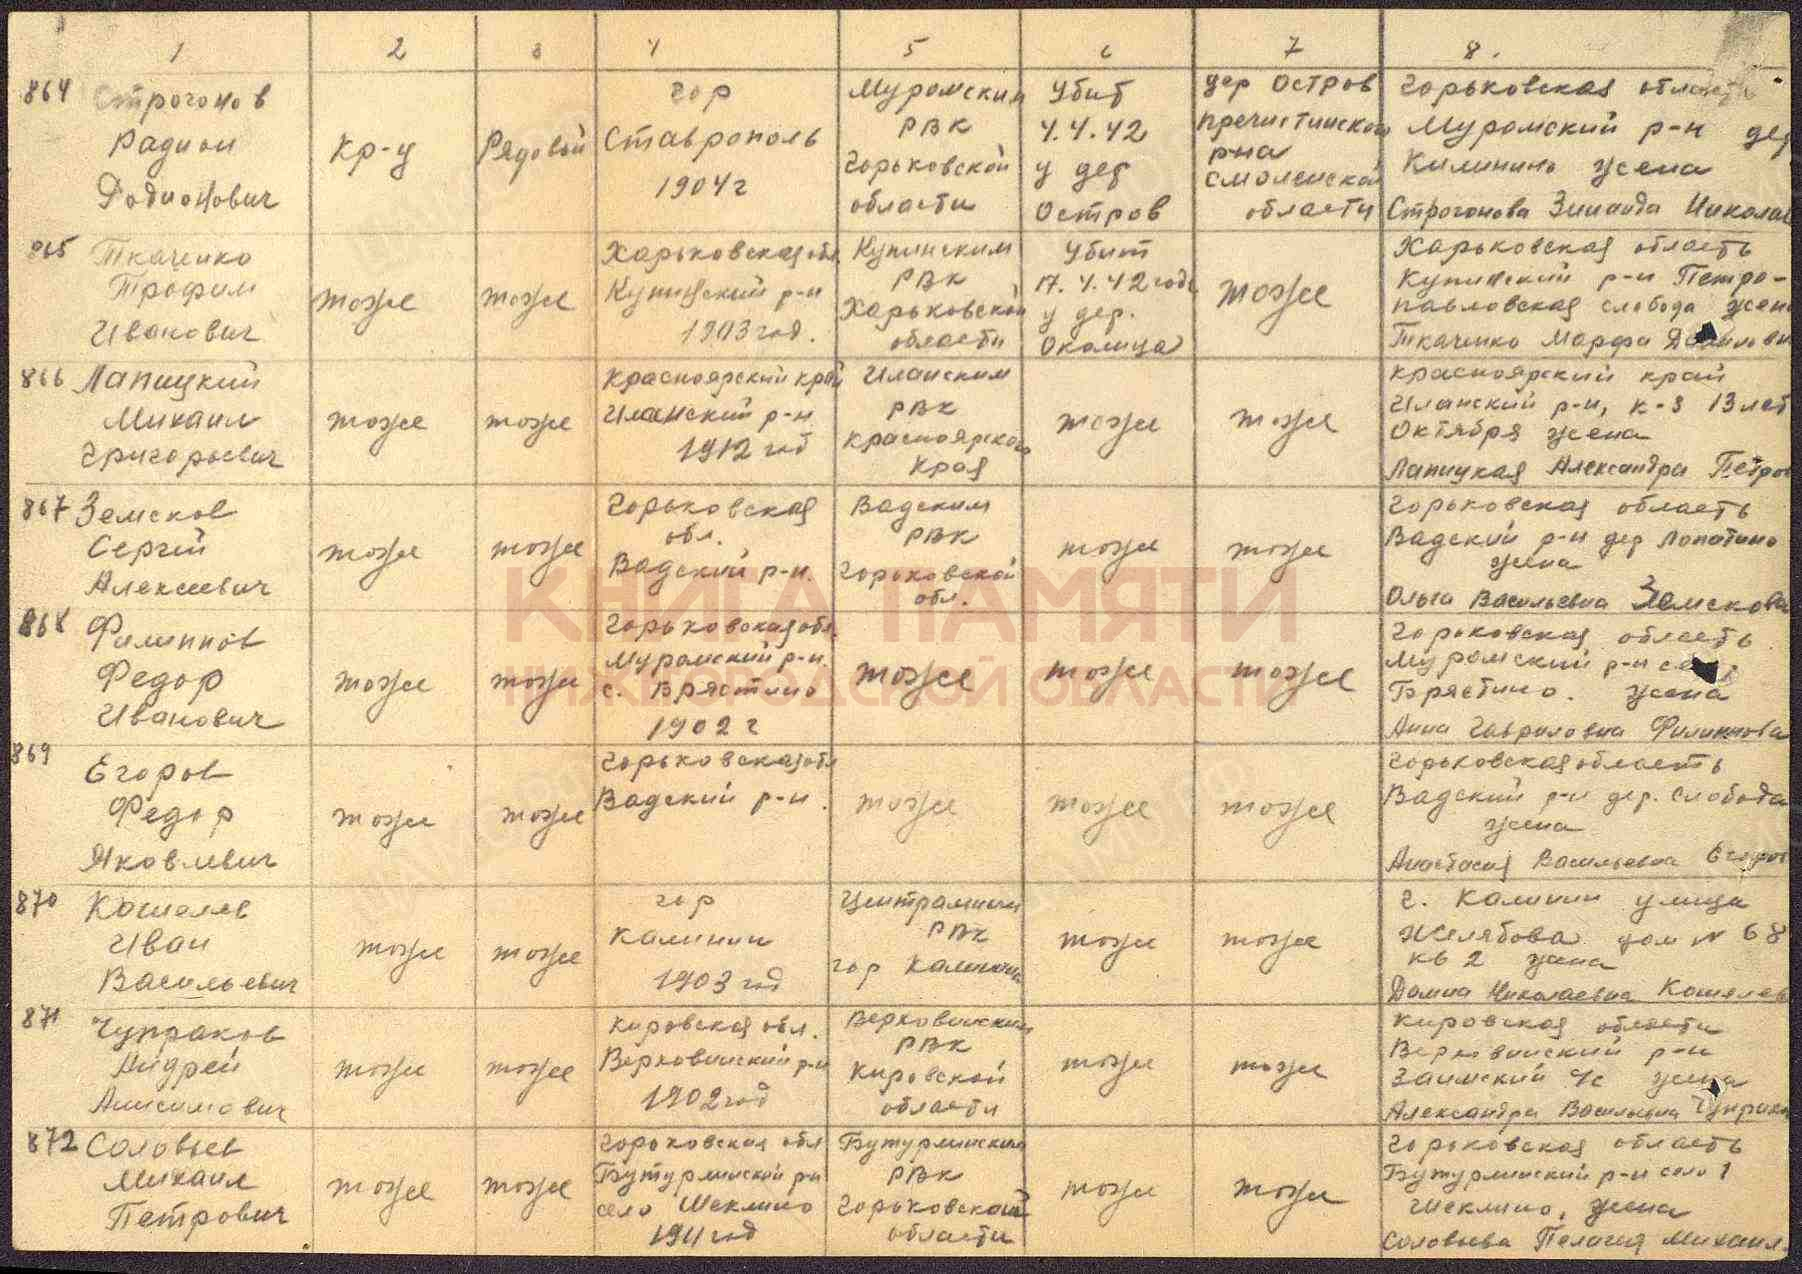 1 2 3 4 5 6 7 8.
864 Строгонов
Радион
Родионович
Кр-ц
Рядовой
гор
Ставрополь
1904 г
Муромским
РВК
Горьковской
области
Убит
4.4.42
у дер
Остров
дер Остров
Пречистинском
р-на
Смоленской
области
Горьковская область
Муромский р-н дер
Калинино жена
Строгонова Зинаида Никола
865 Ткаченко
Трофим
Иванович
тоже
тоже
Харьковская обл
Купинский р-н
1903 год.
Купинским
РВК
Харьковской
области
Убит
17.4.42 года
у дер.
Околица
тоже
Харьковская область
Купинский р-н Петро-
павловская слобода жена
Ткаченко Марфа
866 Лапицкий
Михаил
Григорьевич
тоже
тоже
Красноярский край
Иланский р-н
1912 год
Иланским
РВК
Красноярского
Края
тоже
тоже
Красноярский край
Иланский р-н, к-з 13 лет
Октября жена
Лапицкая Александра Петров
867 Земсков
Сергей
Алексеевич
тоже
тоже
Горьковская
обл.
Вадский р-н.
Вадским
РВК
Горьковской
обл.
тоже
тоже
Горьковская область
Вадский р-н дер Лопатино
жена
Ольга Васильевна Земскова
868 Филиппов
Федор
Иванович
тоже
тоже
Горьковская обл
Муромский р-н.
с. Врястино
1902 г
тоже
тоже
тоже
Горьковская область
Муромский р-н
Брястино. жена
Анна Гавриловна Филиппова
869
Егоров
Федор
Яковлевич
тоже
тоже
Горьковская обл
Вадский р-н.
тоже
тоже
тоже
Горьковская область
Вадский р-н дер. Слобода
жена
Анастасия Васильевна Егоров
870 Кошелев
Иван
Васильевич
тоже
тоже
гор
Калинин
1903 год
Центральным
РВК
гор Калинин
тоже
тоже
г. Калинин улица
Желябова дом N 68
кв 2 жена
Домна Николаевна Кошелев
871 Чупраков
Андрей
Анисимович
тоже
тоже
Кировская обл.
Верховинский р-н
1902 год
Верховинским
РВК
Кировской
области
тоже
тоже
Кировская области
Верховинский р-н
Заимский с/с жена
Александра Васильевна Чупрако
872 Соловьев
Михаил
Петрович
тоже
тоже
Горьковская обл
Бутурлинский р-н
село Инклино
1911 год
Бутурлинским
РВК
Горьковской
области
тоже
тоже
Горьковская область
Бутурлинский р-н село 1
Инклино, жена
Соловьева Пелагея Михаил.
КНИГА ПАМЯТИ
НИЖЕГОРОДСКОЙ ОБЛАСТИ